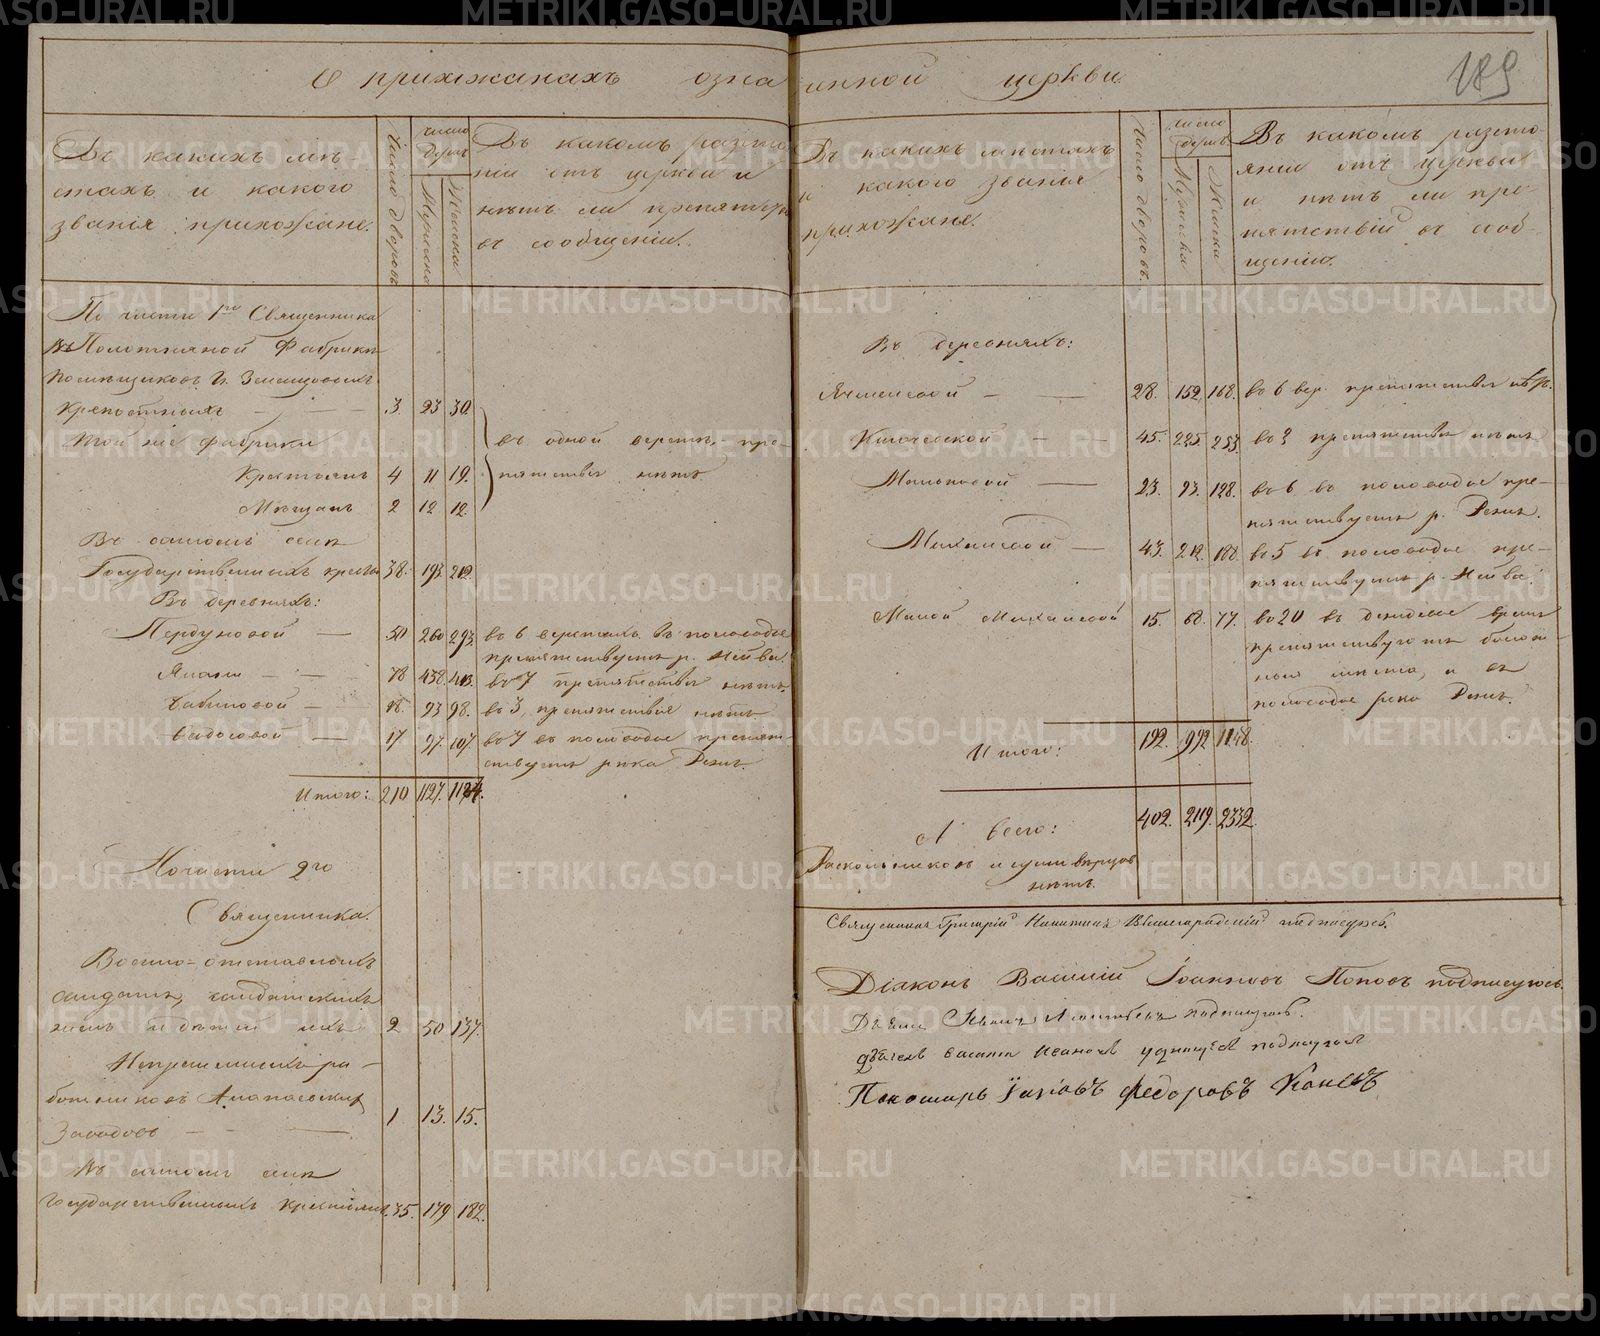 О прихожанахъ означенной церкви
189
Въ какихъ мѣ-
стахъ и какого
званія прихожане.
Число дворовъ
число
душъ
Мужеска
Женска
Въ какомъ разсто
ніи отъ церкви и
нѣтъ ли препятствія
въ сообщеніи.
По части 1го Священника
Въ Полотняной Фабрикѣ
Помѣщиковъ
крепостныхъ — — 3. 23 30.
Той же фабрики
Крестьянъ 4 11 19.
Мѣщанъ 2 12 12.
въ одной верстѣ, пре-
пятствія нѣтъ.
Въ самомъ селѣ
Государственныхъ крестьян 38. 193 212.
Въ деревняхъ:
Пердуновой — 50 260 293. въ 6 верстахъ. въ половодье
препятствуетъ р. Нейва.
78 438. 413. въ 7 препятствія нѣтъ.
Бабиновой — 18. 93 98. въ 3, препятствія нѣтъ
17 97. 107. въ 7 въ половодье препят-
ствуетъ рѣка Режъ.
Итого: 210 1127. 1184.
По части 2го
Священника.
Военно-отставныхъ
солдатъ, солдатскихъ
женъ и дѣтей ихъ 2 50 137.
Непремѣнныхъ ра-
ботниковъ Алапаевскихъ
Заводовъ — — 1 13. 15.
Въ самомъ селѣ
государственныхъ крестьянъ. 35. 179 182.
Въ какихъ мѣстахъ
и какого званія
прихожане.
Число дворовъ.
число
душъ
Мужеска
Женска
Въ какомъ разсто-
яніи отъ церкви
и нѣтъ ли пре-
пятствій въ сооб-
щеніи.
Въ деревняхъ:
Ячменевой — — 28. 152 168. въ 6 вер. препятствія нѣтъ.
Ключевской — — 45. 225. 253. въ 3 препятствія нѣтъ
— 23. 93. 128. въ 6 въ половодье пре-
пятствуетъ р. Режъ.
Михалевой — 43. 212. 188. въ 5 въ половодье пре-
пятствуетъ р. Нейва.
Малой Михалевой 15. 68. 77. въ 20 въ дождевое время
препятствуютъ болот-
ныя мѣста, и въ
половодье река Режъ.
Итого: 192. 992 1148.
А всего: 402. 2119. 2332.
Раскольниковъ и иновѣрцовъ
нѣтъ.
Священникъ Григорій Никитинъ подписуюсь.
Діаконъ Василій Іоанновъ Поповъ подписуюсь.
подписуюсь.
Пономарь Іаковъ Федоровъ
METRIKI.GASO-URAL.RU